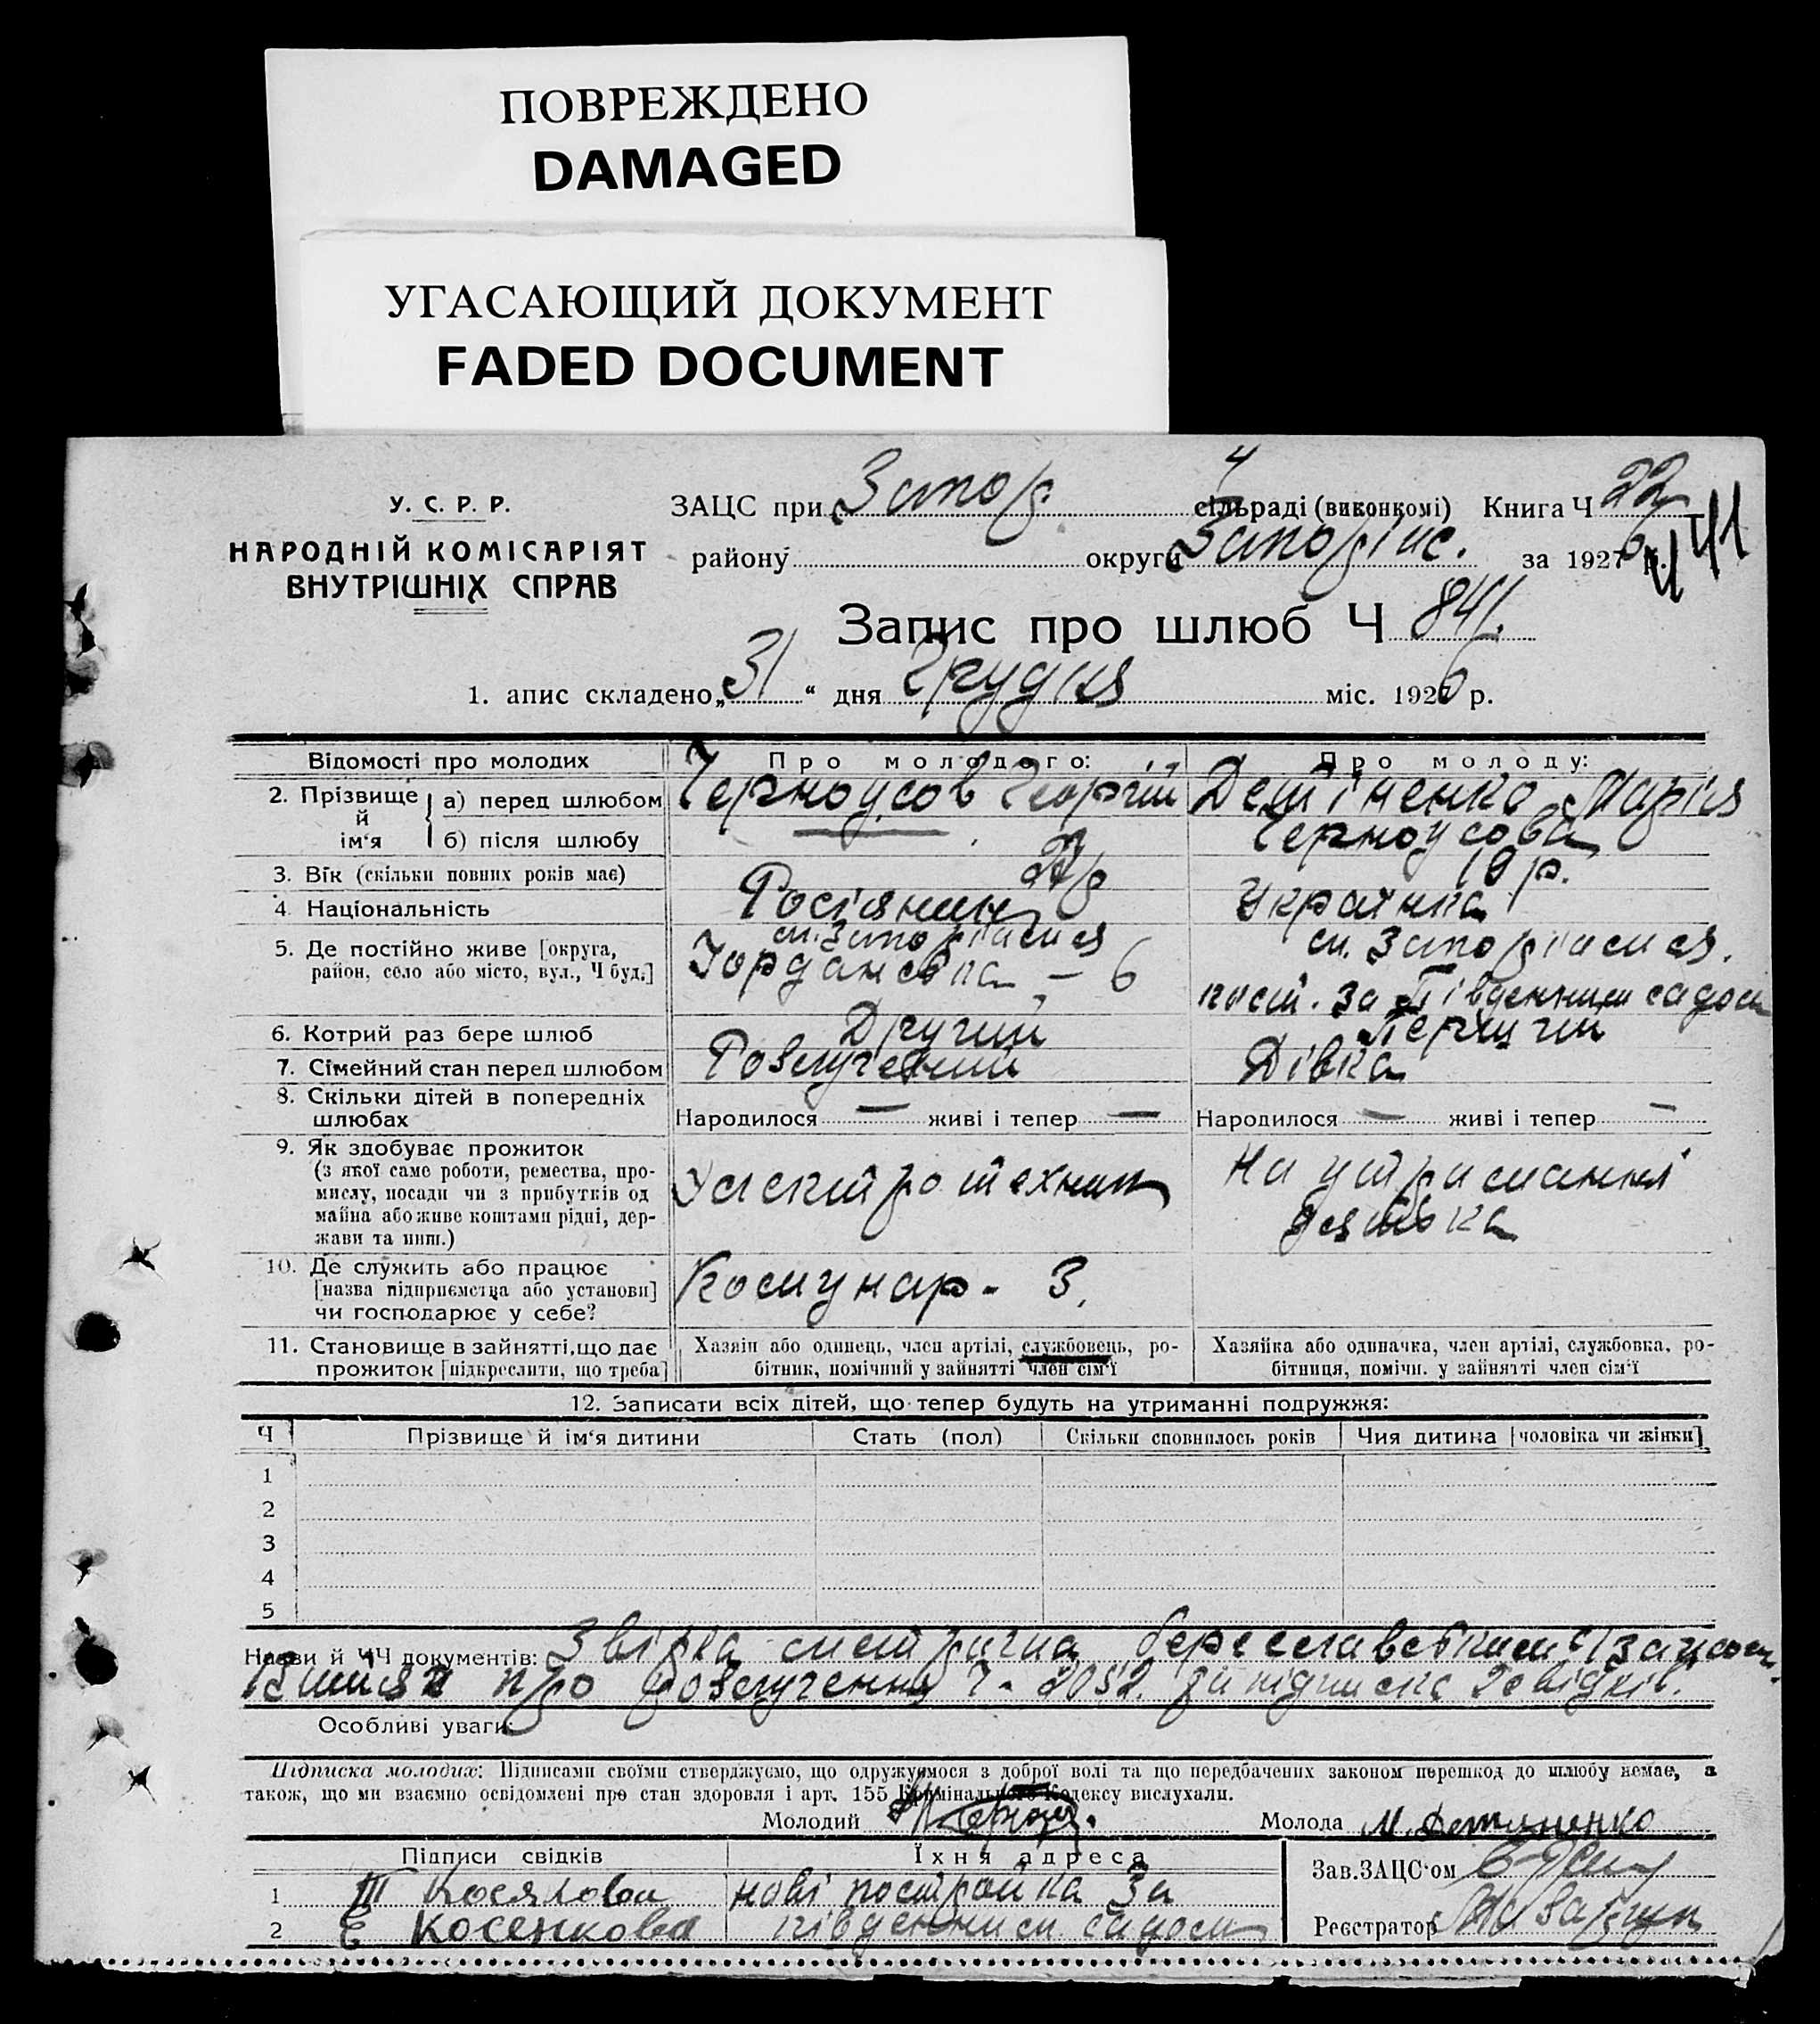 ПОВРЕЖДЕНО
DAMAGED
УГАСАЮЩИЙ ДОКУМЕНТ
FADED DOCUMENT
У. С. Р. Р.
НАРОДНІЙ КОМІСАРІЯТ
ВНУТРІШНІХ СПРАВ
ЗАЦС при Запор. 4 сільраді (виконкомі) Книга Ч 22
району округи Запоріж. за 1926 р.
Запис про шлюб Ч 841.
1. апис складено „31“ дня Грудня міс. 1926 р.
Відомості про молодих Про молодого: Про молоду:
2. Прізвище й ім'я а) перед шлюбом Черноусов Георгій Детіненко Марія
б) після шлюбу Черноусова
3. Вік (скільки повних років має) 19 р.
4. Національність Росіянин Українка
5. Де постійно живе [округа, район, село або місто, вул., Ч буд.] м. Запоріжжя
Іорданська - 6
м. Запоріжжя.
пост. за Південним садом
6. Котрий раз бере шлюб Другий Перший
7. Сімейний стан перед шлюбом Розлучений Дівка
8. Скільки дітей в попередніх шлюбах Народилося — живі і тепер — Народилося — живі і тепер —
9. Як здобуває прожиток
(з якої саме роботи, ремества, промислу, посади чи з прибутків од
майна або живе коштами рідні, держави та инш.)
електротехник
На утриманні
дядька
10. Де служить або працює
[назва підприємства або установи]
чи господарює у себе?
Комунар - З.
11. Становище в зайнятті, що дає Хазяін або одинець, член артілі, службовець, ро- Хазяйка або одиначка, член артілі, службовка, ро-
прожиток [підкреслити, що треба] бітник, помічний у зайнятті член сім'ї бітниця, помічн. у зайнятті член сім'ї
12. Записати всіх дітей, що тепер будуть на утриманні подружжя:
Ч Прізвище й ім'я дитини Стать (пол) Скільки сповнилось років Чия дитина [чоловіка чи жінки]
1
2
3
4
5
Назви й ЧЧ документів: Звірка метрична
про розлучення Ч. 2052. підписка 2 свідків.
Особливі уваги:
Підписка молодих: Підписами своїми стверджуємо, що одружуємося з доброї волі та що передбачених законом перешкод до шлюбу немає, а
також, що ми взаємно освідомлені про стан здоровля і арт. 155 Кримінального Кодексу вислухали.
Молодий Молода М. Детиненко
Підписи свідків Їхня адреса Зав. ЗАЦС'ом
1 нові постройка за
2 Е Косенкова південним садом Реєстратор